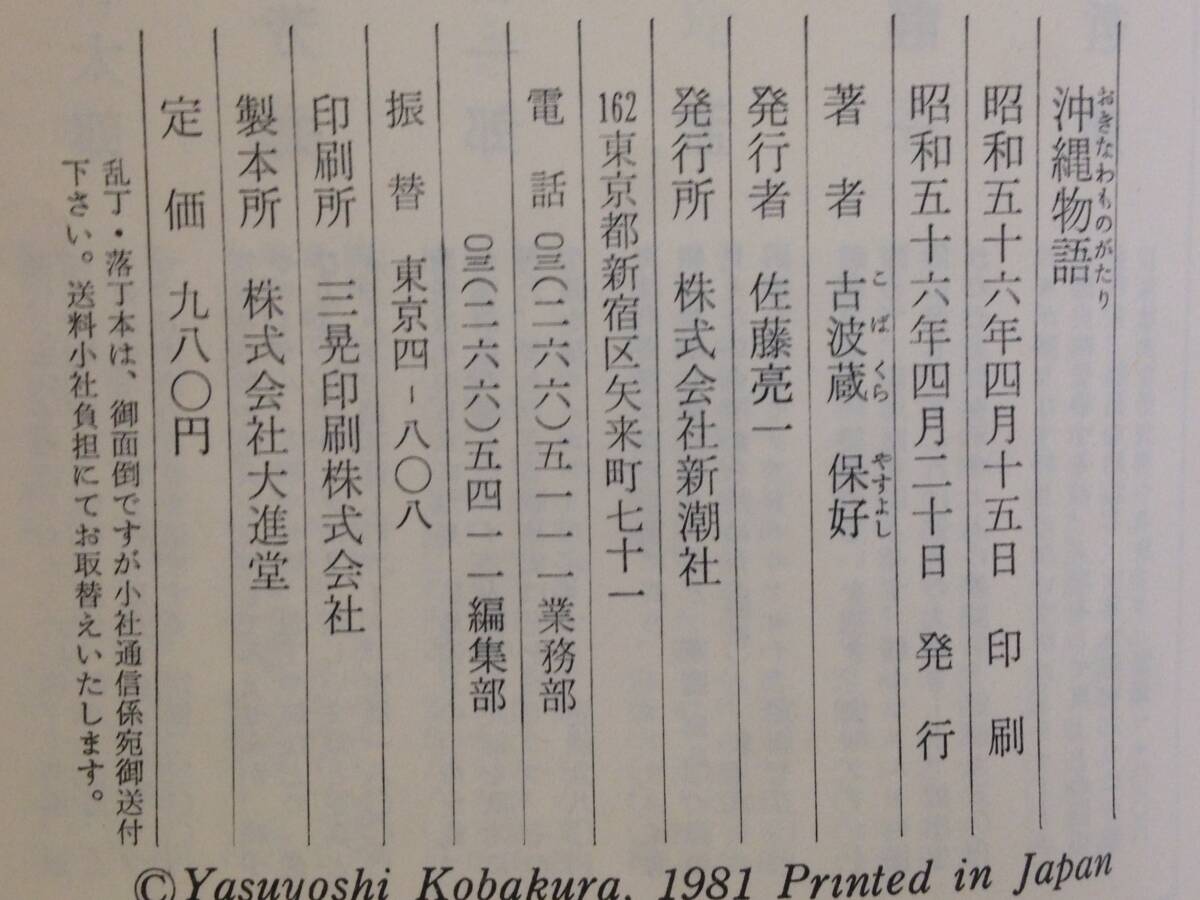 沖縄物語
おきなわものがたり
昭和五十六年四月十五日 印刷
昭和五十六年四月二十日 発行
著者 古波蔵 保好
こばくら やすよし
発行者 佐藤亮一
発行所 株式会社新潮社
162東京都新宿区矢来町七十一
電話 〇三(二六六)五一一一業務部
〇三(二六六)五四一一編集部
振替 東京四-八〇八
印刷所 三晃印刷株式会社
製本所 株式会社大進堂
定価 九八〇円
乱丁・落丁本は、御面倒ですが小社通信係宛御送付
下さい。送料小社負担にてお取替えいたします。
©Yasuyoshi Kobakura, 1981 Printed in Japan